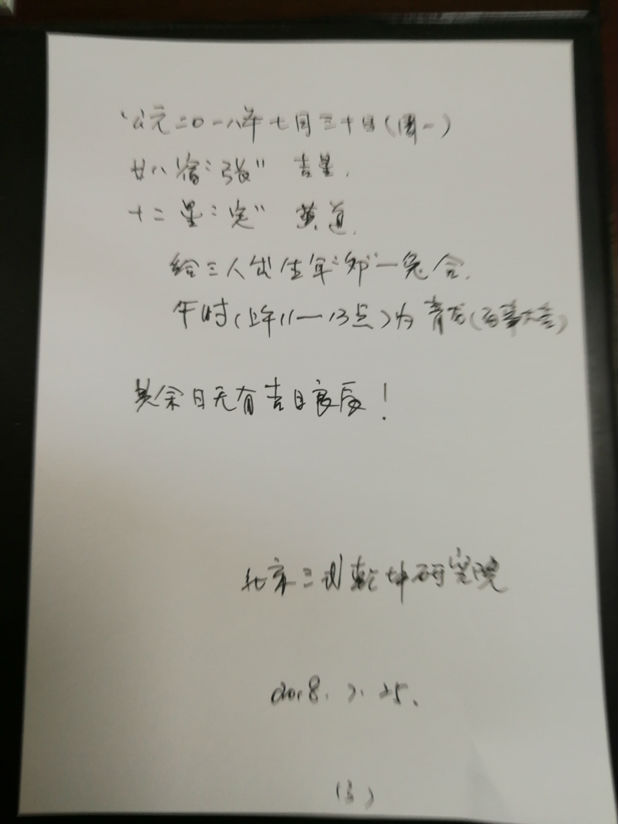 公元二〇一八年七月三十日(周一)
廿八宿:"张" 吉星.
十二星:"定" 黄道.
给三人出生年"卯"一兔合.
午时(上午11—13点)为青龙(百事大吉)
其余日无有吉日良辰!
北京三式乾坤研究院
2018.7.25.
(3)